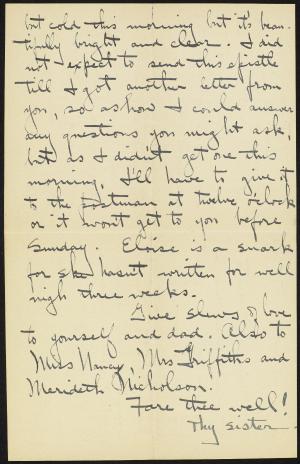 but cold this morning but it's beau-
tifully bright and clear. I did
not expect to send this epistle
till I got another letter from
you, so as how I could answer
any questions you might ask,
but as I didn't get one this
morning, I'll have to give it
to the postman at twelve o'clock
or it won't get to you before
Sunday. Eloise is a snark
for she hasn't written for well
nigh three weeks.
Give slews of love
to yourself and dad. Also to
Miss Nancy, Mrs Griffiths and
Merideth Nicholson.
Fare thee well!
Thy sister